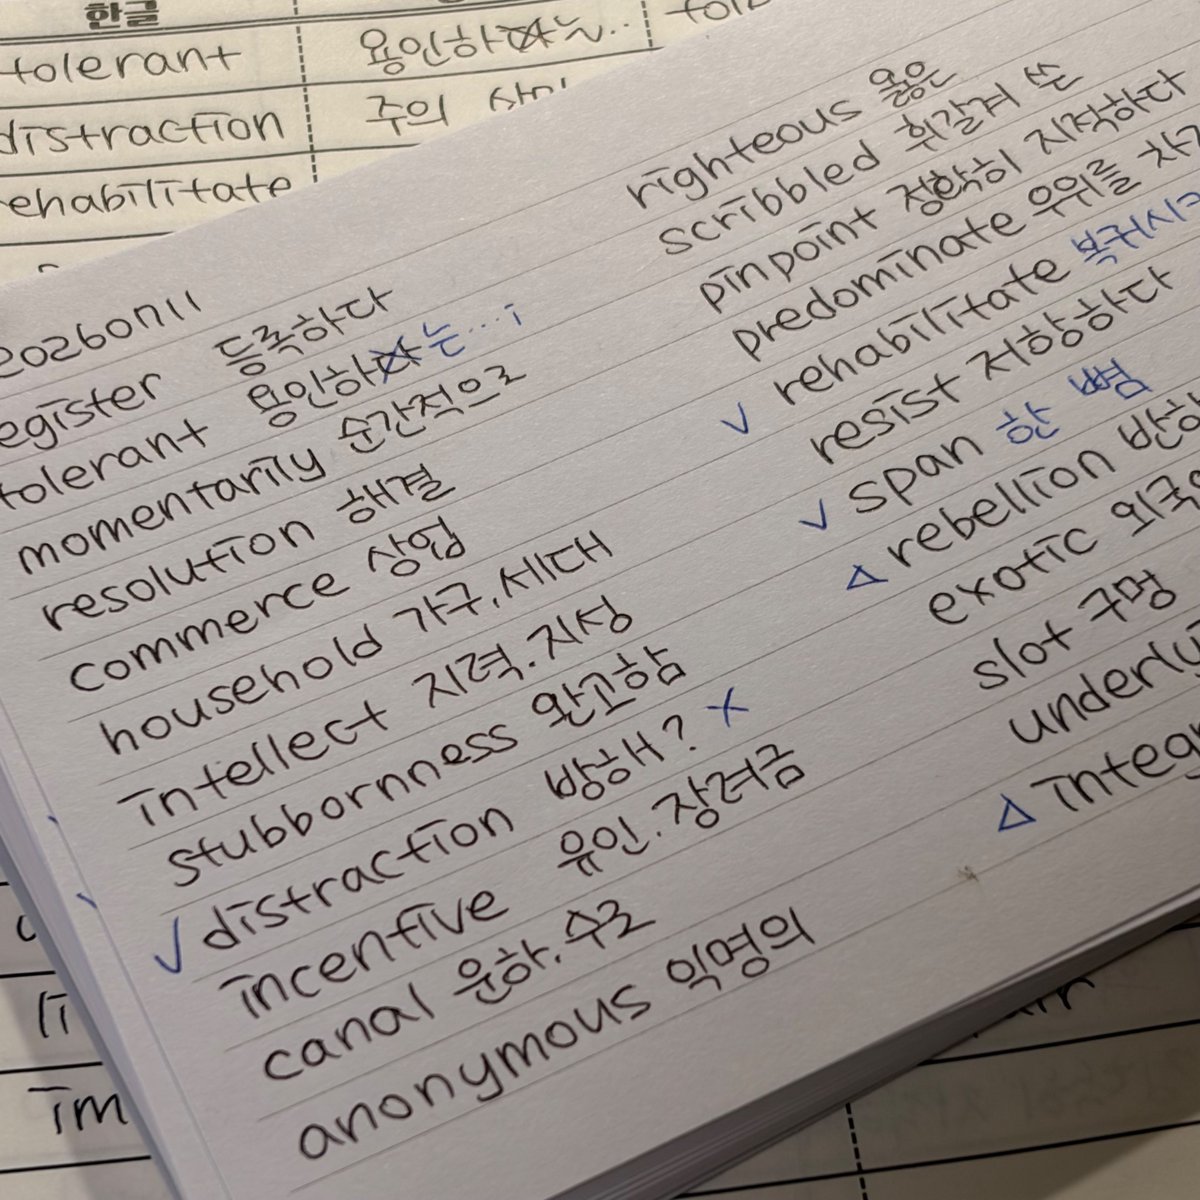 한글
tolerant 용인하는..
distraction 주의
rehabilitate
20260711
register 등록하다
tolerant 용인하는...
momentarily 순간적으로
resolution 해결
commerce 상업
household 가구, 세대
intellect 지력. 지성
stubbornness 완고함
✓ distraction 방해? ×
incentive 유인. 장려금
canal 운하. 수로
anonymous 익명의
righteous 옳은
scribbled 휘갈겨 쓴
pinpoint 정확히 지적하다
predominate 우위를
✓ rehabilitate 복귀시키
resist 저항하다
✓ span 한 뼘
△ rebellion 반
exotic 외국
slot 구멍
underly
△ integ
im